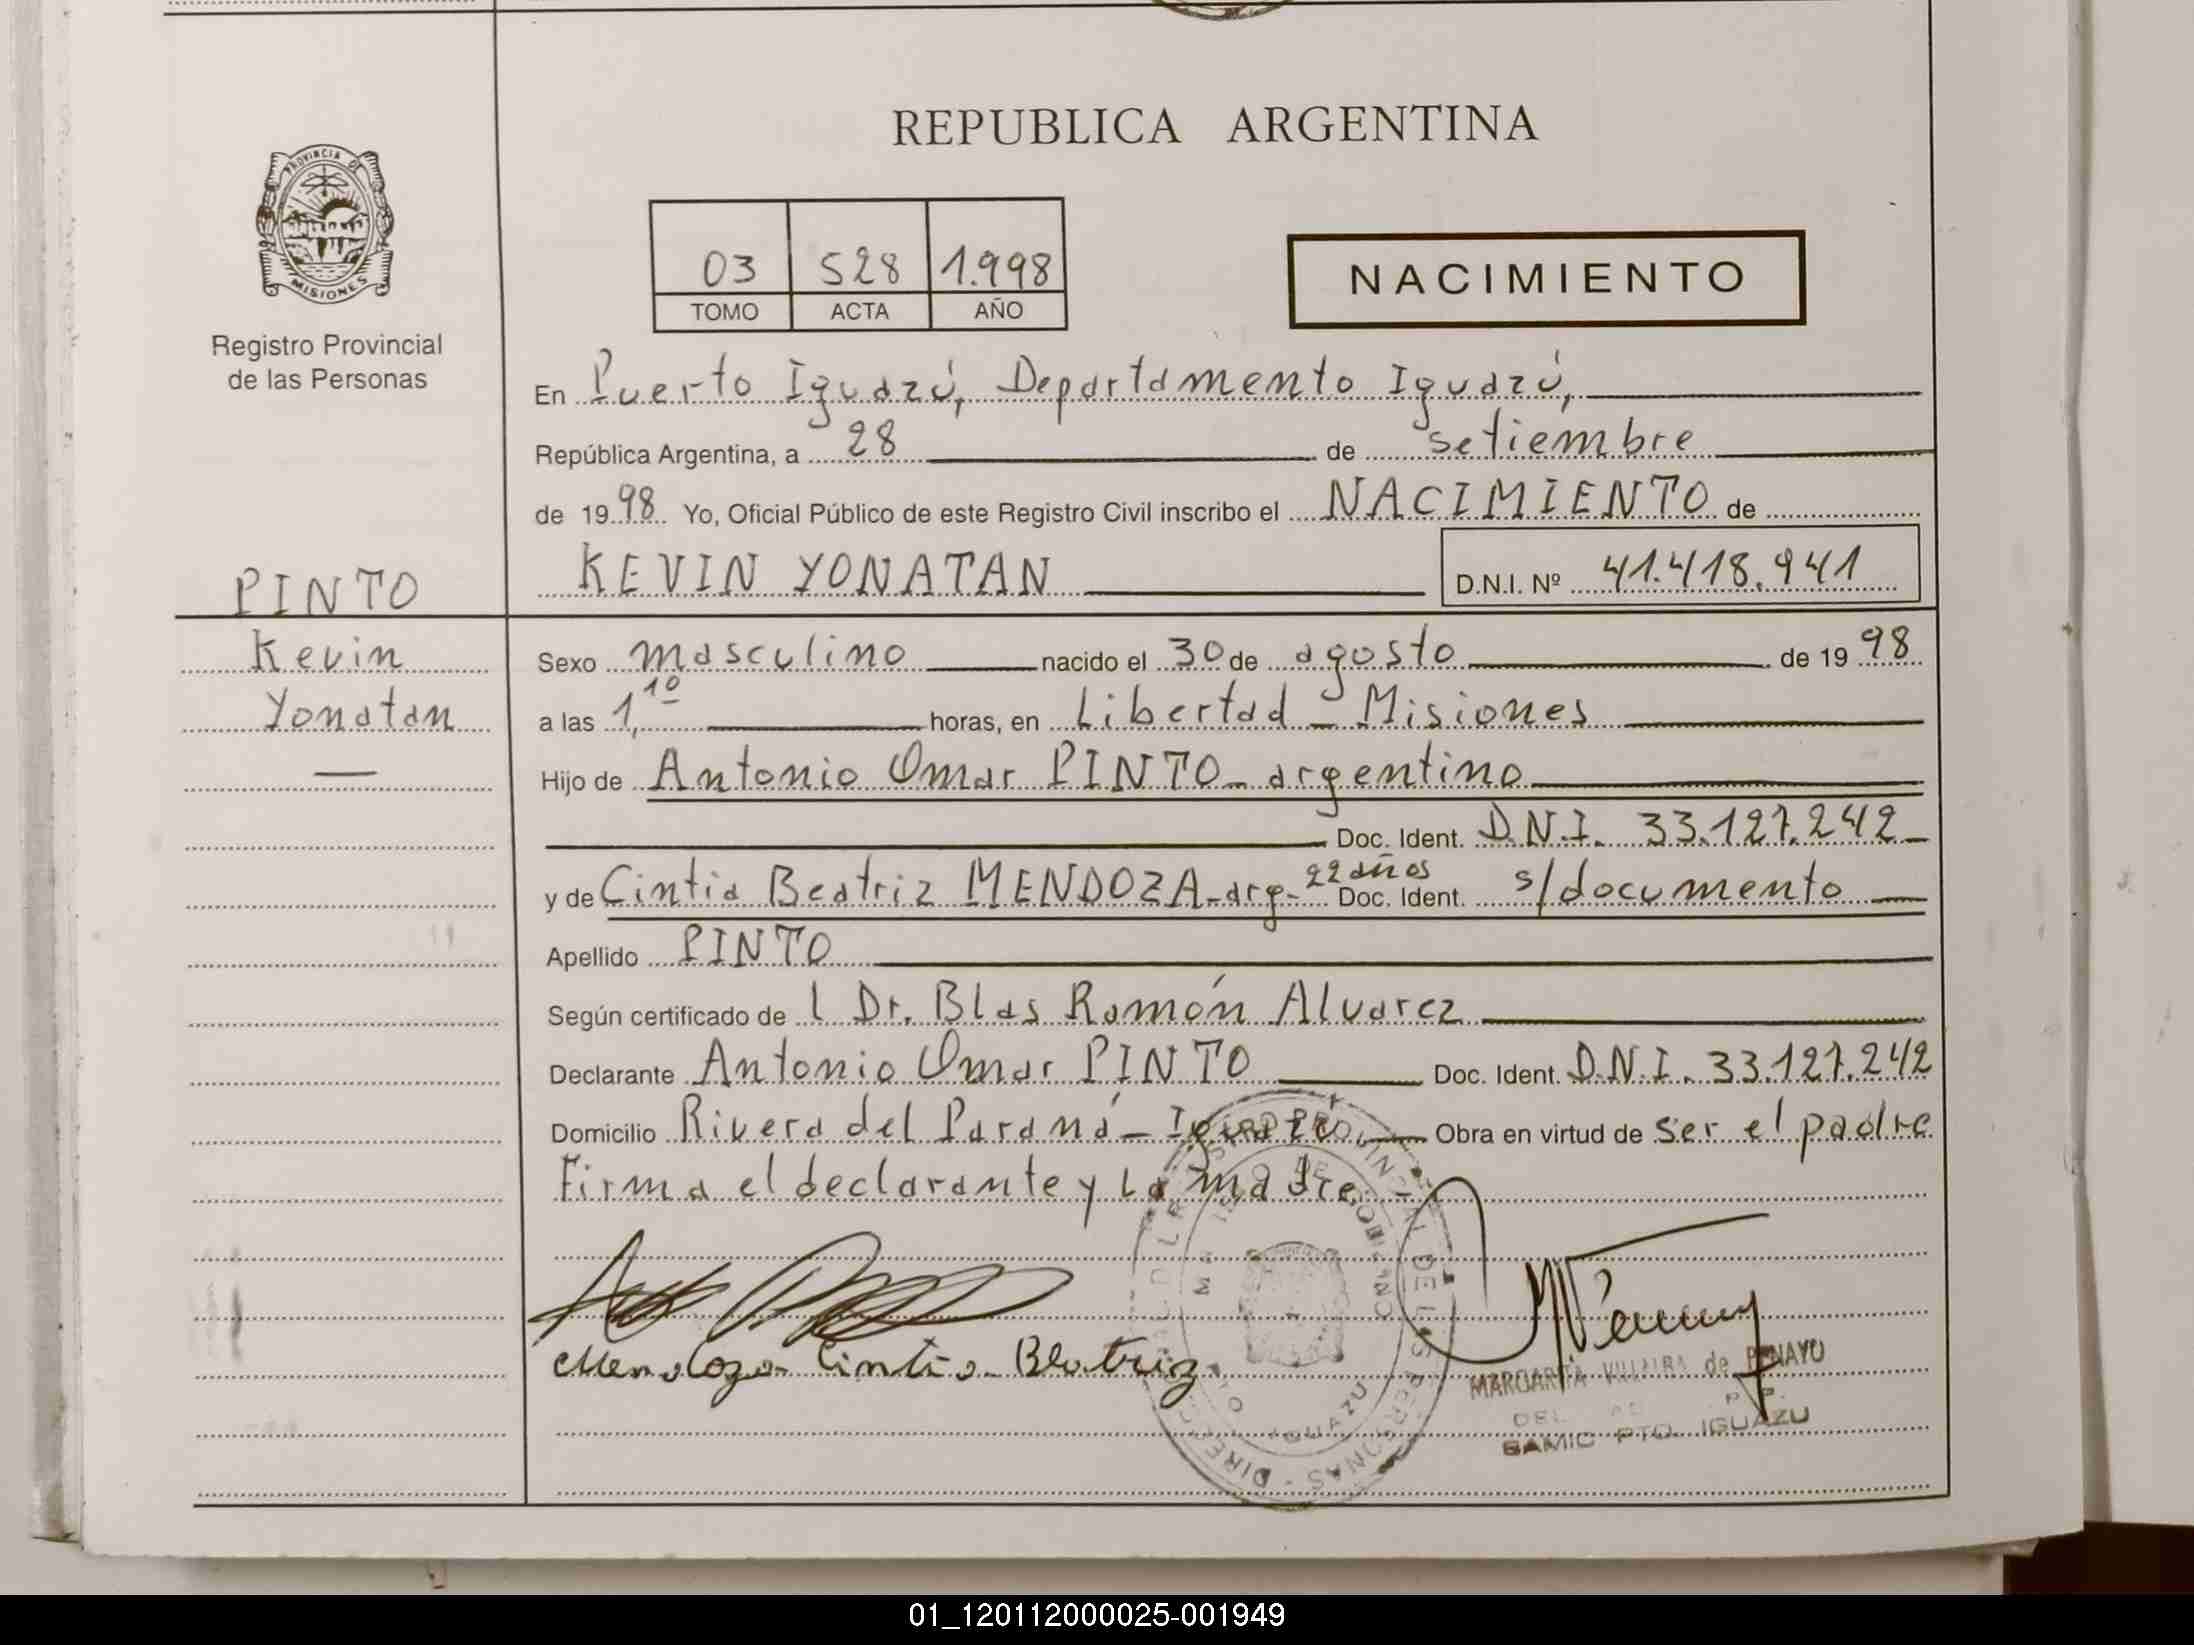 REPUBLICA ARGENTINA
PROVINCIA DE MISIONES
Registro Provincial
de las Personas
03 528 1.998
TOMO ACTA AÑO
NACIMIENTO
En Puerto Iguazú, Departamento Iguazú,
República Argentina, a 28 de setiembre
de 1998 Yo, Oficial Público de este Registro Civil inscribo el NACIMIENTO de
KEVIN YONATAN D.N.I. Nº 41.418.941
PINTO
Kevin
Yonatan
Sexo masculino nacido el 30 de agosto de 1998
a las 1,10 horas, en Libertad - Misiones
Hijo de Antonio Omar PINTO - argentino
Doc. Ident. D.N.I. 33.127.242
y de Cintia Beatriz MENDOZA - arg - 22 años Doc. Ident. s/documento
Apellido PINTO
Según certificado de l Dr. Blas Ramón Alvarez
Declarante Antonio Omar PINTO Doc. Ident. D.N.I. 33.127.242
Domicilio Rivera del Paraná - Iguazú Obra en virtud de ser el padre
Firma el declarante y La madre -
Mendoza Cintia Beatriz
MARGARITA VILLALBA de PENAYO
SAMIC PTO. IGUAZU
01_120112000025-001949